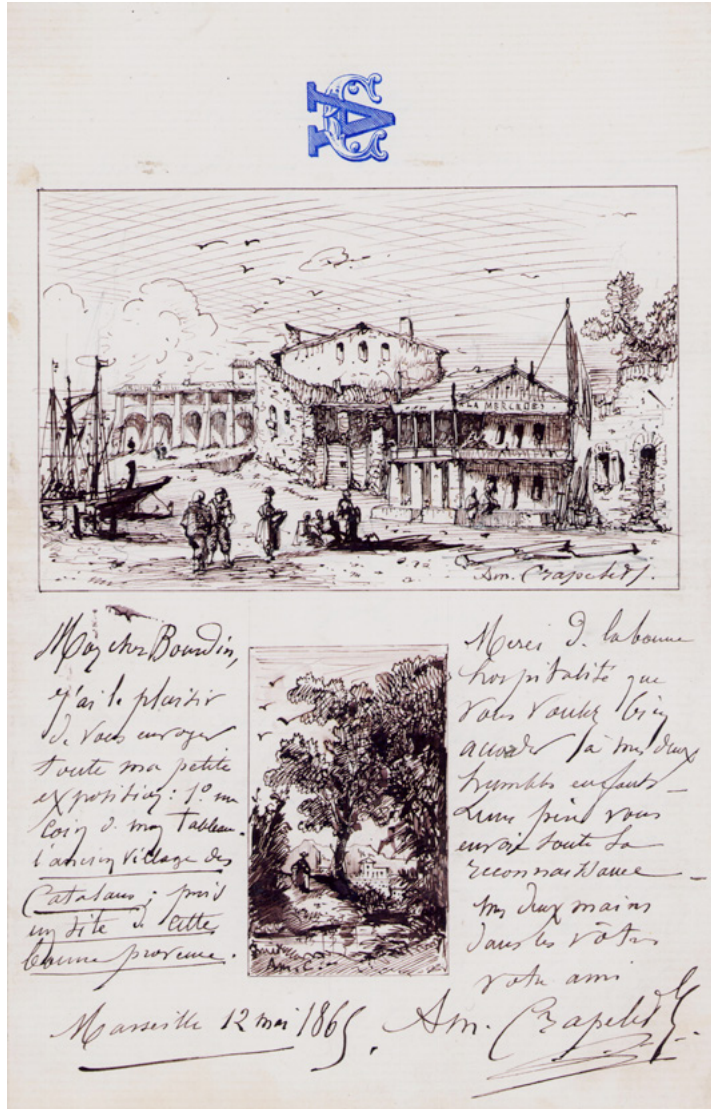 AC
A MERCEDES
Am. Crapelet
Mon cher Bourdin,
j'ai le plaisir
de vous envoyer
toute ma petite
exposition: 1º un
coin de mon tableau.
l'ancien village des
Catalans; puis
un site de cette
bonne provence.
Am. C.
Merci de la bonne
hospitalité que
vous voulez bien
accorder à mes deux
humbles enfants_
Leur père vous
envoie toute sa
reconnaissance_
mes deux mains
dans les vôtres
votre ami
Marseille 12 mai 1865.
Am. Crapelet